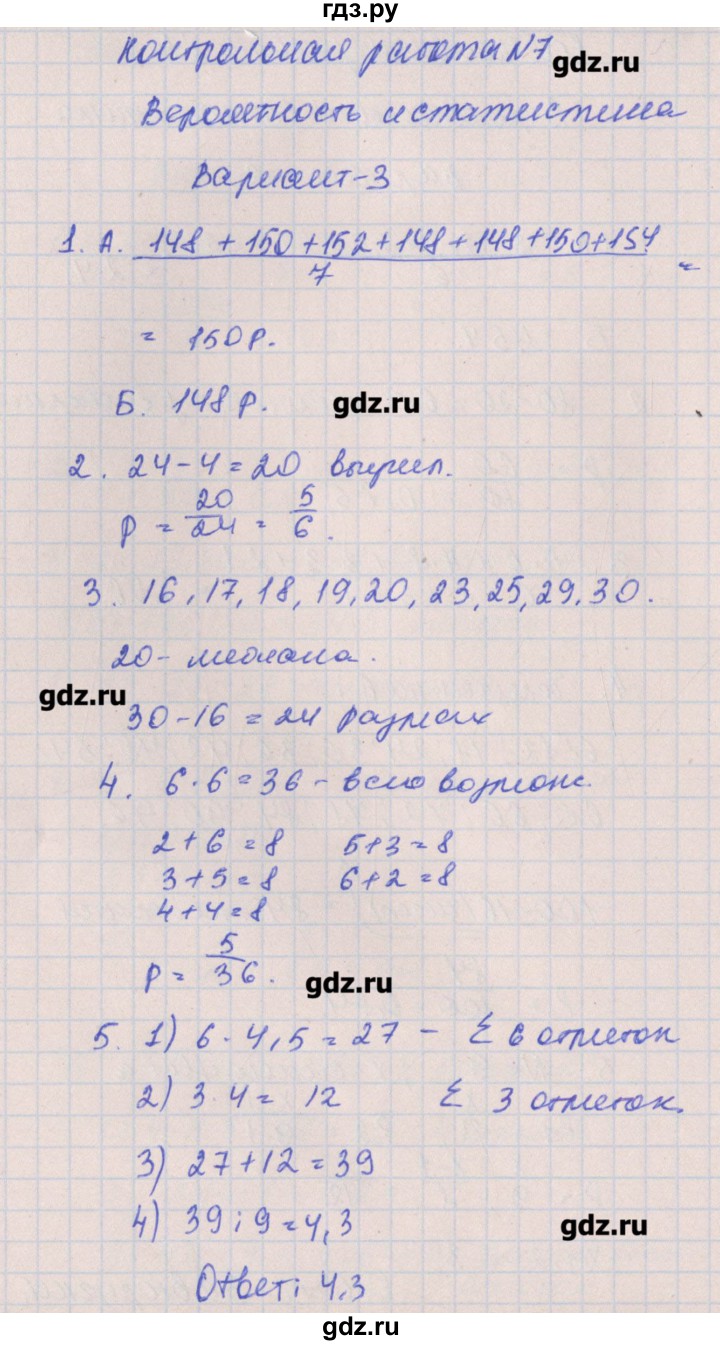 гдз.ру
Контрольная работа №7
gdz.ru
Вероятность и статистика
Вариант-3
1. А. 148 + 150 + 152 + 148 + 148 + 150 + 154 / 7 =
= 150 р.
Б. 148 р.
gdz.ru
2. 24 - 4 = 20 выигрл.
P = 20/24 = 5/6.
3. 16, 17, 18, 19, 20, 23, 25, 29, 30.
20 - медиана.
gdz.ru
30 - 16 = 24 размах
4. 6 · 6 = 36 - всего возмож.
2 + 6 = 8 5 + 3 = 8
3 + 5 = 8 6 + 2 = 8
4 + 4 = 8
P = 5/36.
gdz.ru
5. 1) 6 · 4,5 = 27 - Σ 6 отметок
2) 3 · 4 = 12 Σ 3 отметок.
3) 27 + 12 = 39
4) 39 : 9 = 4,3
gdz.ru
Ответ: 4,3
gdz.ru